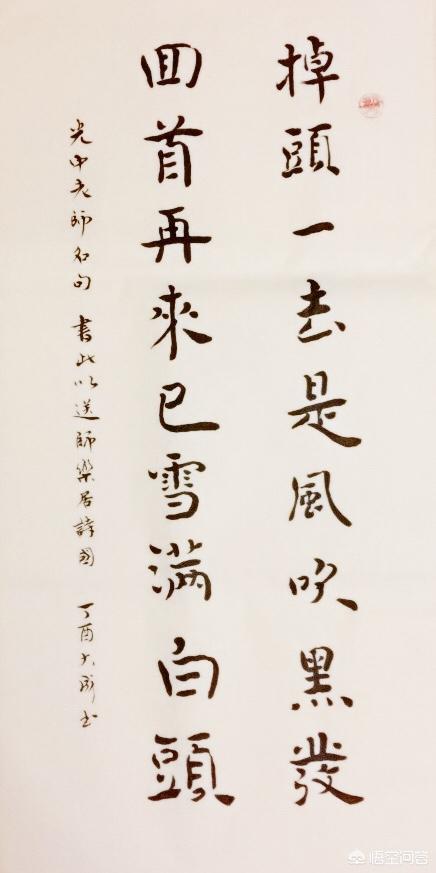 掉頭一去是風吹黑發
回首再來已雪滿白頭
光中老師名句 書此以送師樂居詩國 丁酉大
悟空问答